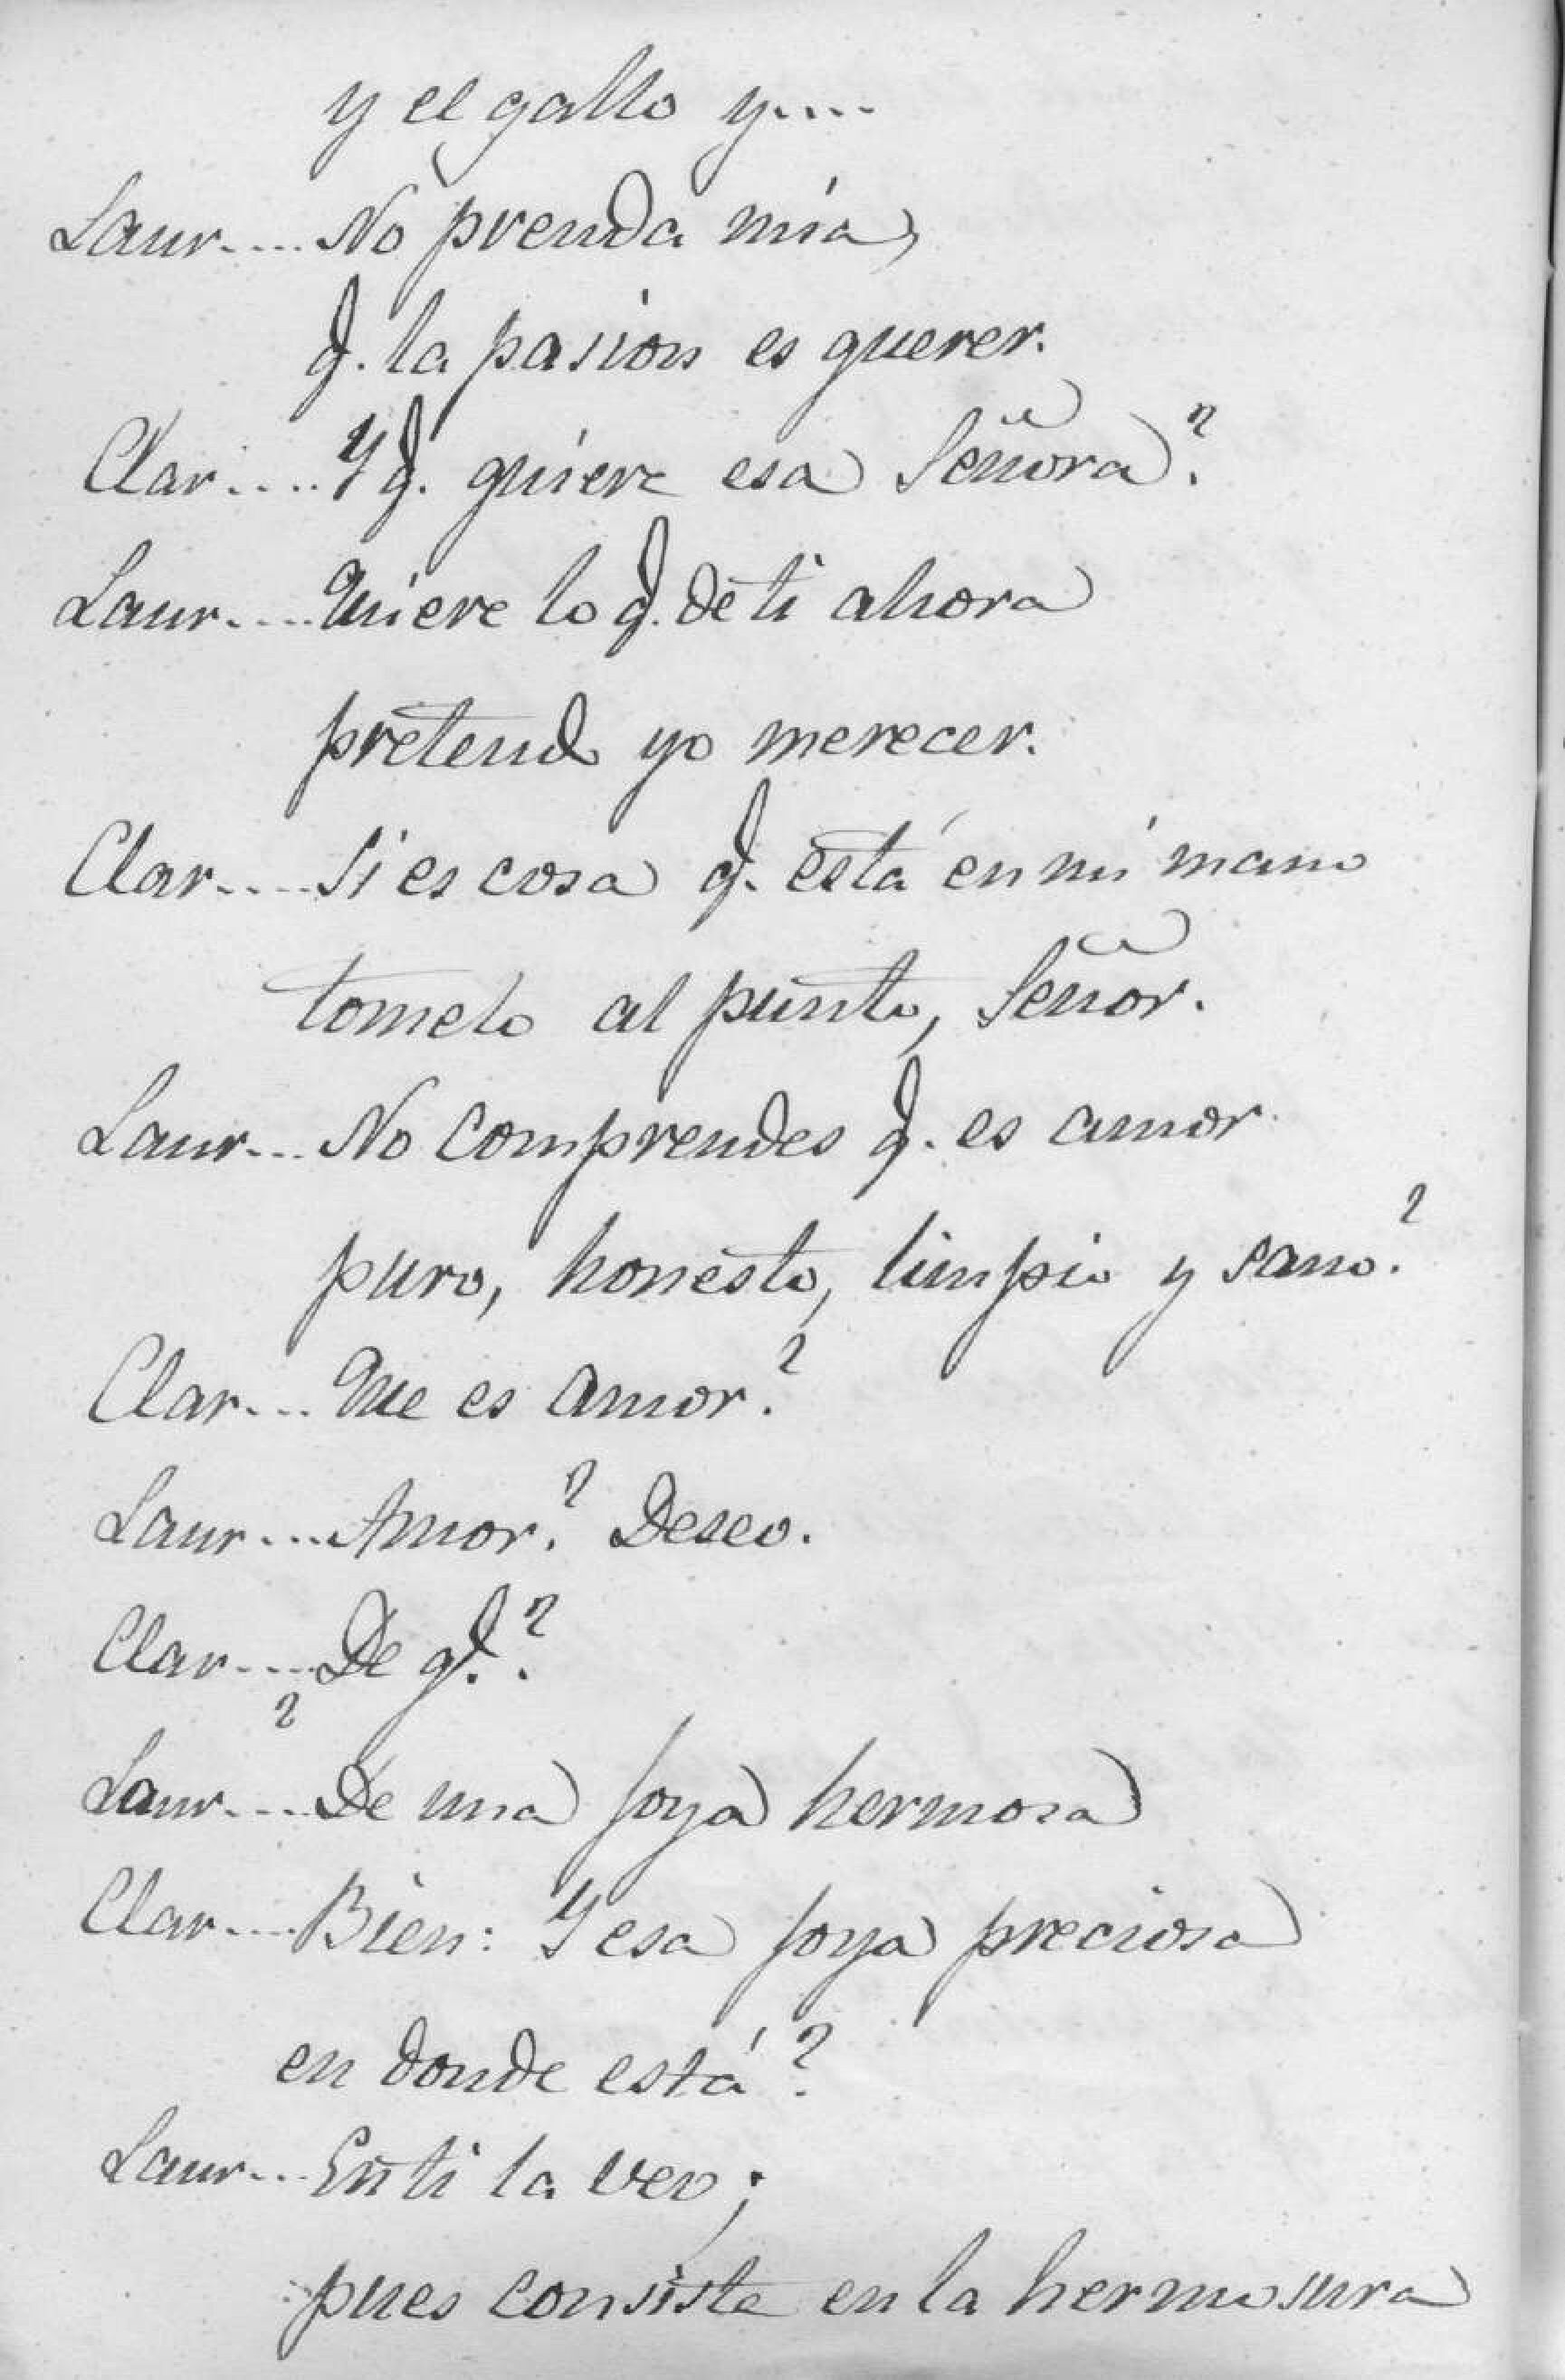 y el gallo y....
Laur.... No prenda mía,
q. la pasion es querer.
Clar.... Y q. quiere esa Señora?
Laur.... Quiere lo q. de ti ahora
pretendo yo merecer.
Clar.... Si es cosa q. está en mi mano
tomelo al punto, Señor.
Laur... No comprendes q. es amor
puro, honesto, limpio y sano?
Clar... Que es amor?
Laur... Amor? Deseo.
Clar.... De q.?
Laur.... De una joya hermosa
Clar.... Bien: Y esa joya preciosa
en donde está?
Laur... En ti la veo;
pues consiste en la hermosura